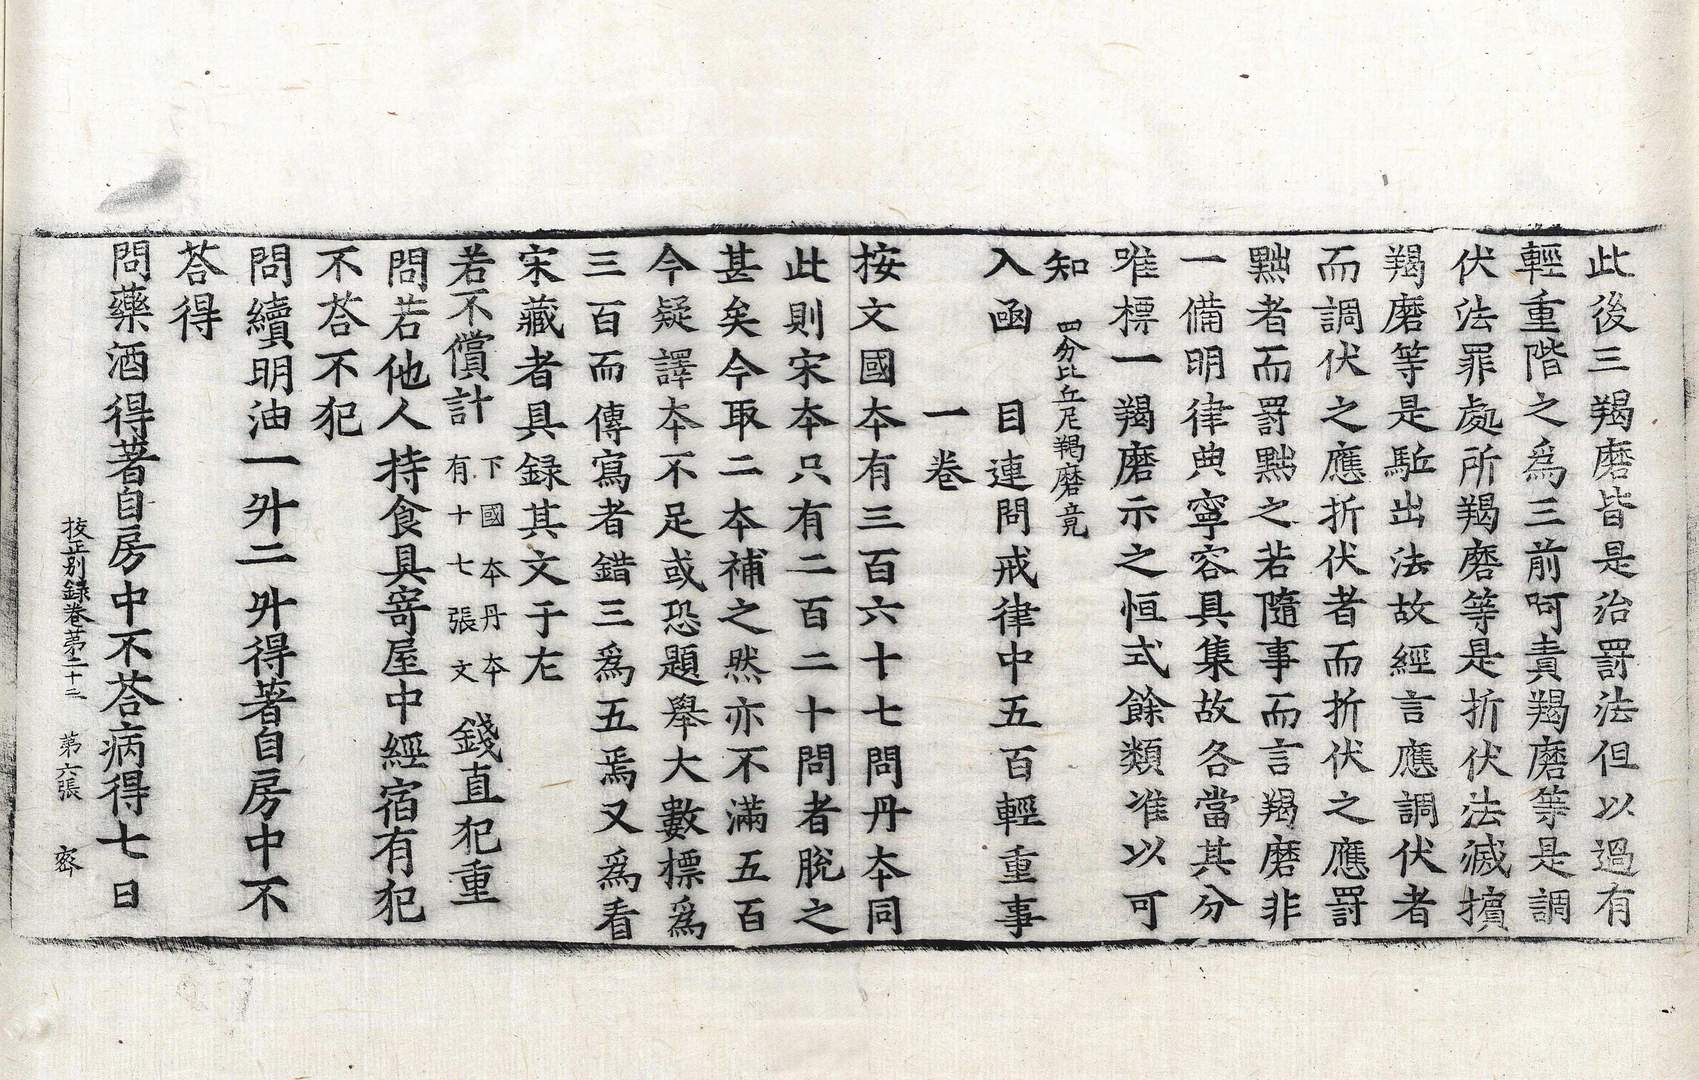 此後三羯磨皆是治罰法但以過有
輕重階之爲三前呵責羯磨等是調
伏法罪處所羯磨等是折伏法滅擯
羯磨等是駈出法故經言應調伏者
而調伏之應折伏者而折伏之應罰
黜者而罰黜之若隨事而言羯磨非
一備明律典寧容具集故各當其分
唯標一羯磨示之恒式餘類准以可
知 四分比丘尼羯磨竟
入函 目連問戒律中五百輕重事
一卷
按文國夲有三百六十七問丹夲同
此則宋夲只有二百二十問者脫之
甚矣今取二夲補之然亦不滿五百
今疑譯夲不足或恐題擧大數標爲
三百而傳寫者錯三爲五焉又爲看
宋藏者具録其文于左
若不償計 下國夲丹夲
有十七張文 錢直犯重
問若他人持食具寄屋中經宿有犯
不荅不犯
問續明油一升二升得著自房中不
荅得
問藥酒得著自房中不荅病得七日
挍正別録卷第二十三 第六張 密